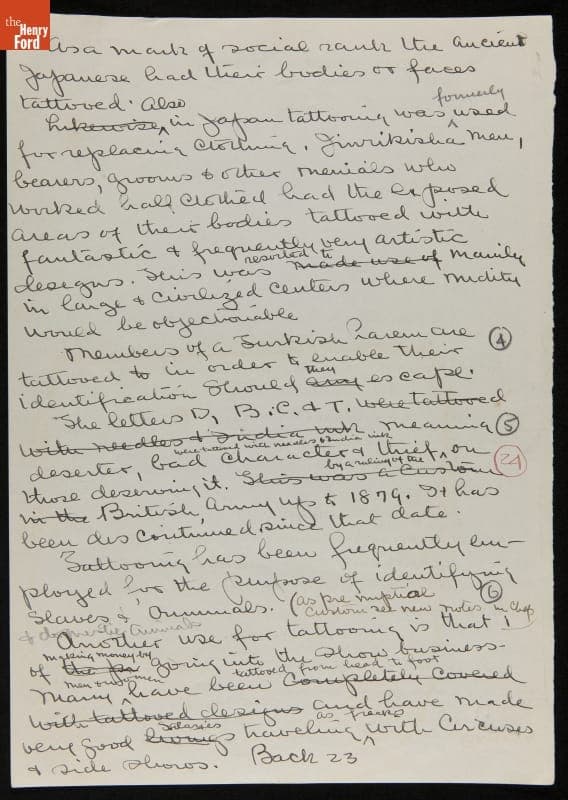 the
Henry
Ford
As a mark of social rank the ancient
Japanese had their bodies or faces
tattooed. Also
formerly
Likewise, in Japan tattooing was used
for replacing clothing. Jinrikisha men,
bearers, grooms & other menials who
worked half clothed had the exposed
areas of their bodies tattooed with
fantastic & frequently very artistic
resorted to
designs. This was made use of mainly
in large & civilized centers where nudity
would be objectionable
Members of a Turkish harem are 4
tattooed to in order to enable their
they
identification should any escape.
The letters D, B.C. & T. were tattooed
with needles & India ink meaning 5
were tattooed with needles & India ink
deserter, bad character & thief, on
by a ruling of the 24
those deserving it. This was a custom
in the British Army up to 1879. It has
been discontinued since that date.
Tattooing has been frequently em-
ployed for the purpose of identifying
slaves & criminals. (as pre nuptial 6
custom see new notes in Chap
& domestic animals
Another use for tattooing is that
making money by
of the going into the show business.
men & women tattooed from head to foot
Many have been completely covered
with tattooed designs and have made
salaries as freaks
very good livings traveling with circuses
& side shows. Back 23